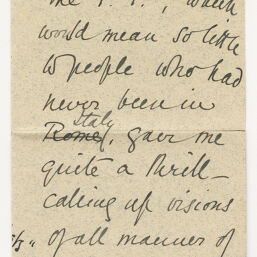 the P. P., which
would mean so little
to people who had
never been in
Italy
Rome, gave me
quite a thrill—
calling up visions
of all manner of